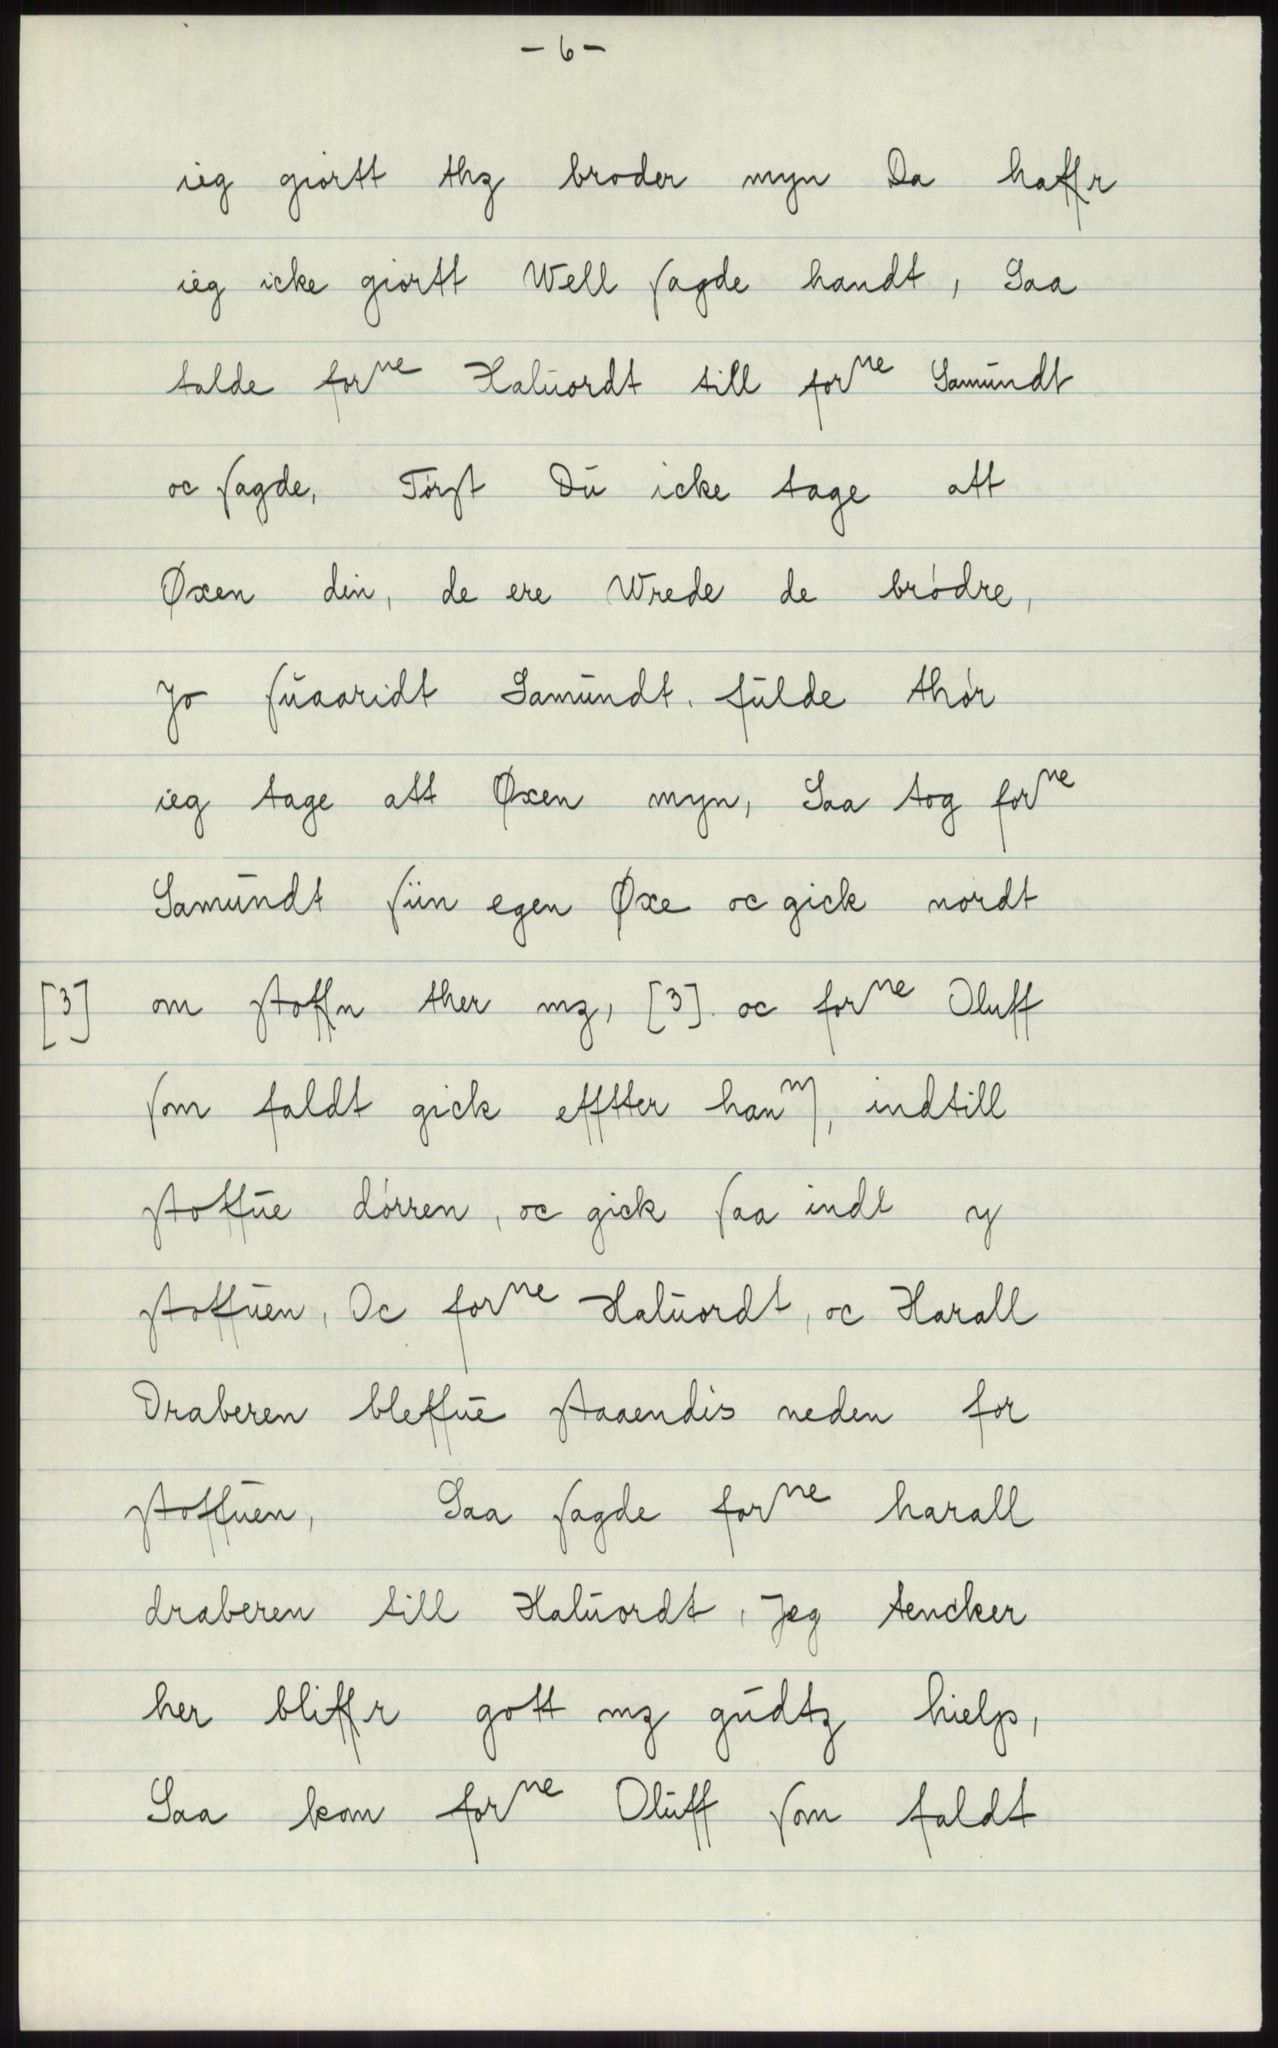 - 6 -
ieg giortt thz broder myn Da haffr
ieg icke giortt Well sagde handt, Saa
talde forne Haluordt till forne Samundt
oc sagde, Törst Du icke tage att
Øxen din, de ere Wrede de brödre,
Jo suaaridt Samundt. fulde thör
ieg tage att Øxen myn, Saa tog forne
Samundt siin egen Øxe oc gick nordt
[3] om stoffn ther mz, [3]. oc forne Oluff
som faldt gick effter hanm, indtill
stoffue dörren, oc gick saa indt y
stoffuen, Oc forne Haluordt, oc Harall
Draberen bleffue staaendis neden for
stoffuen, Saa sagde forne harall
draberen till Haluordt, Jeg tencker
her bliffr gott mz gudtz hielp,
Saa kom forne Oluff som faldt